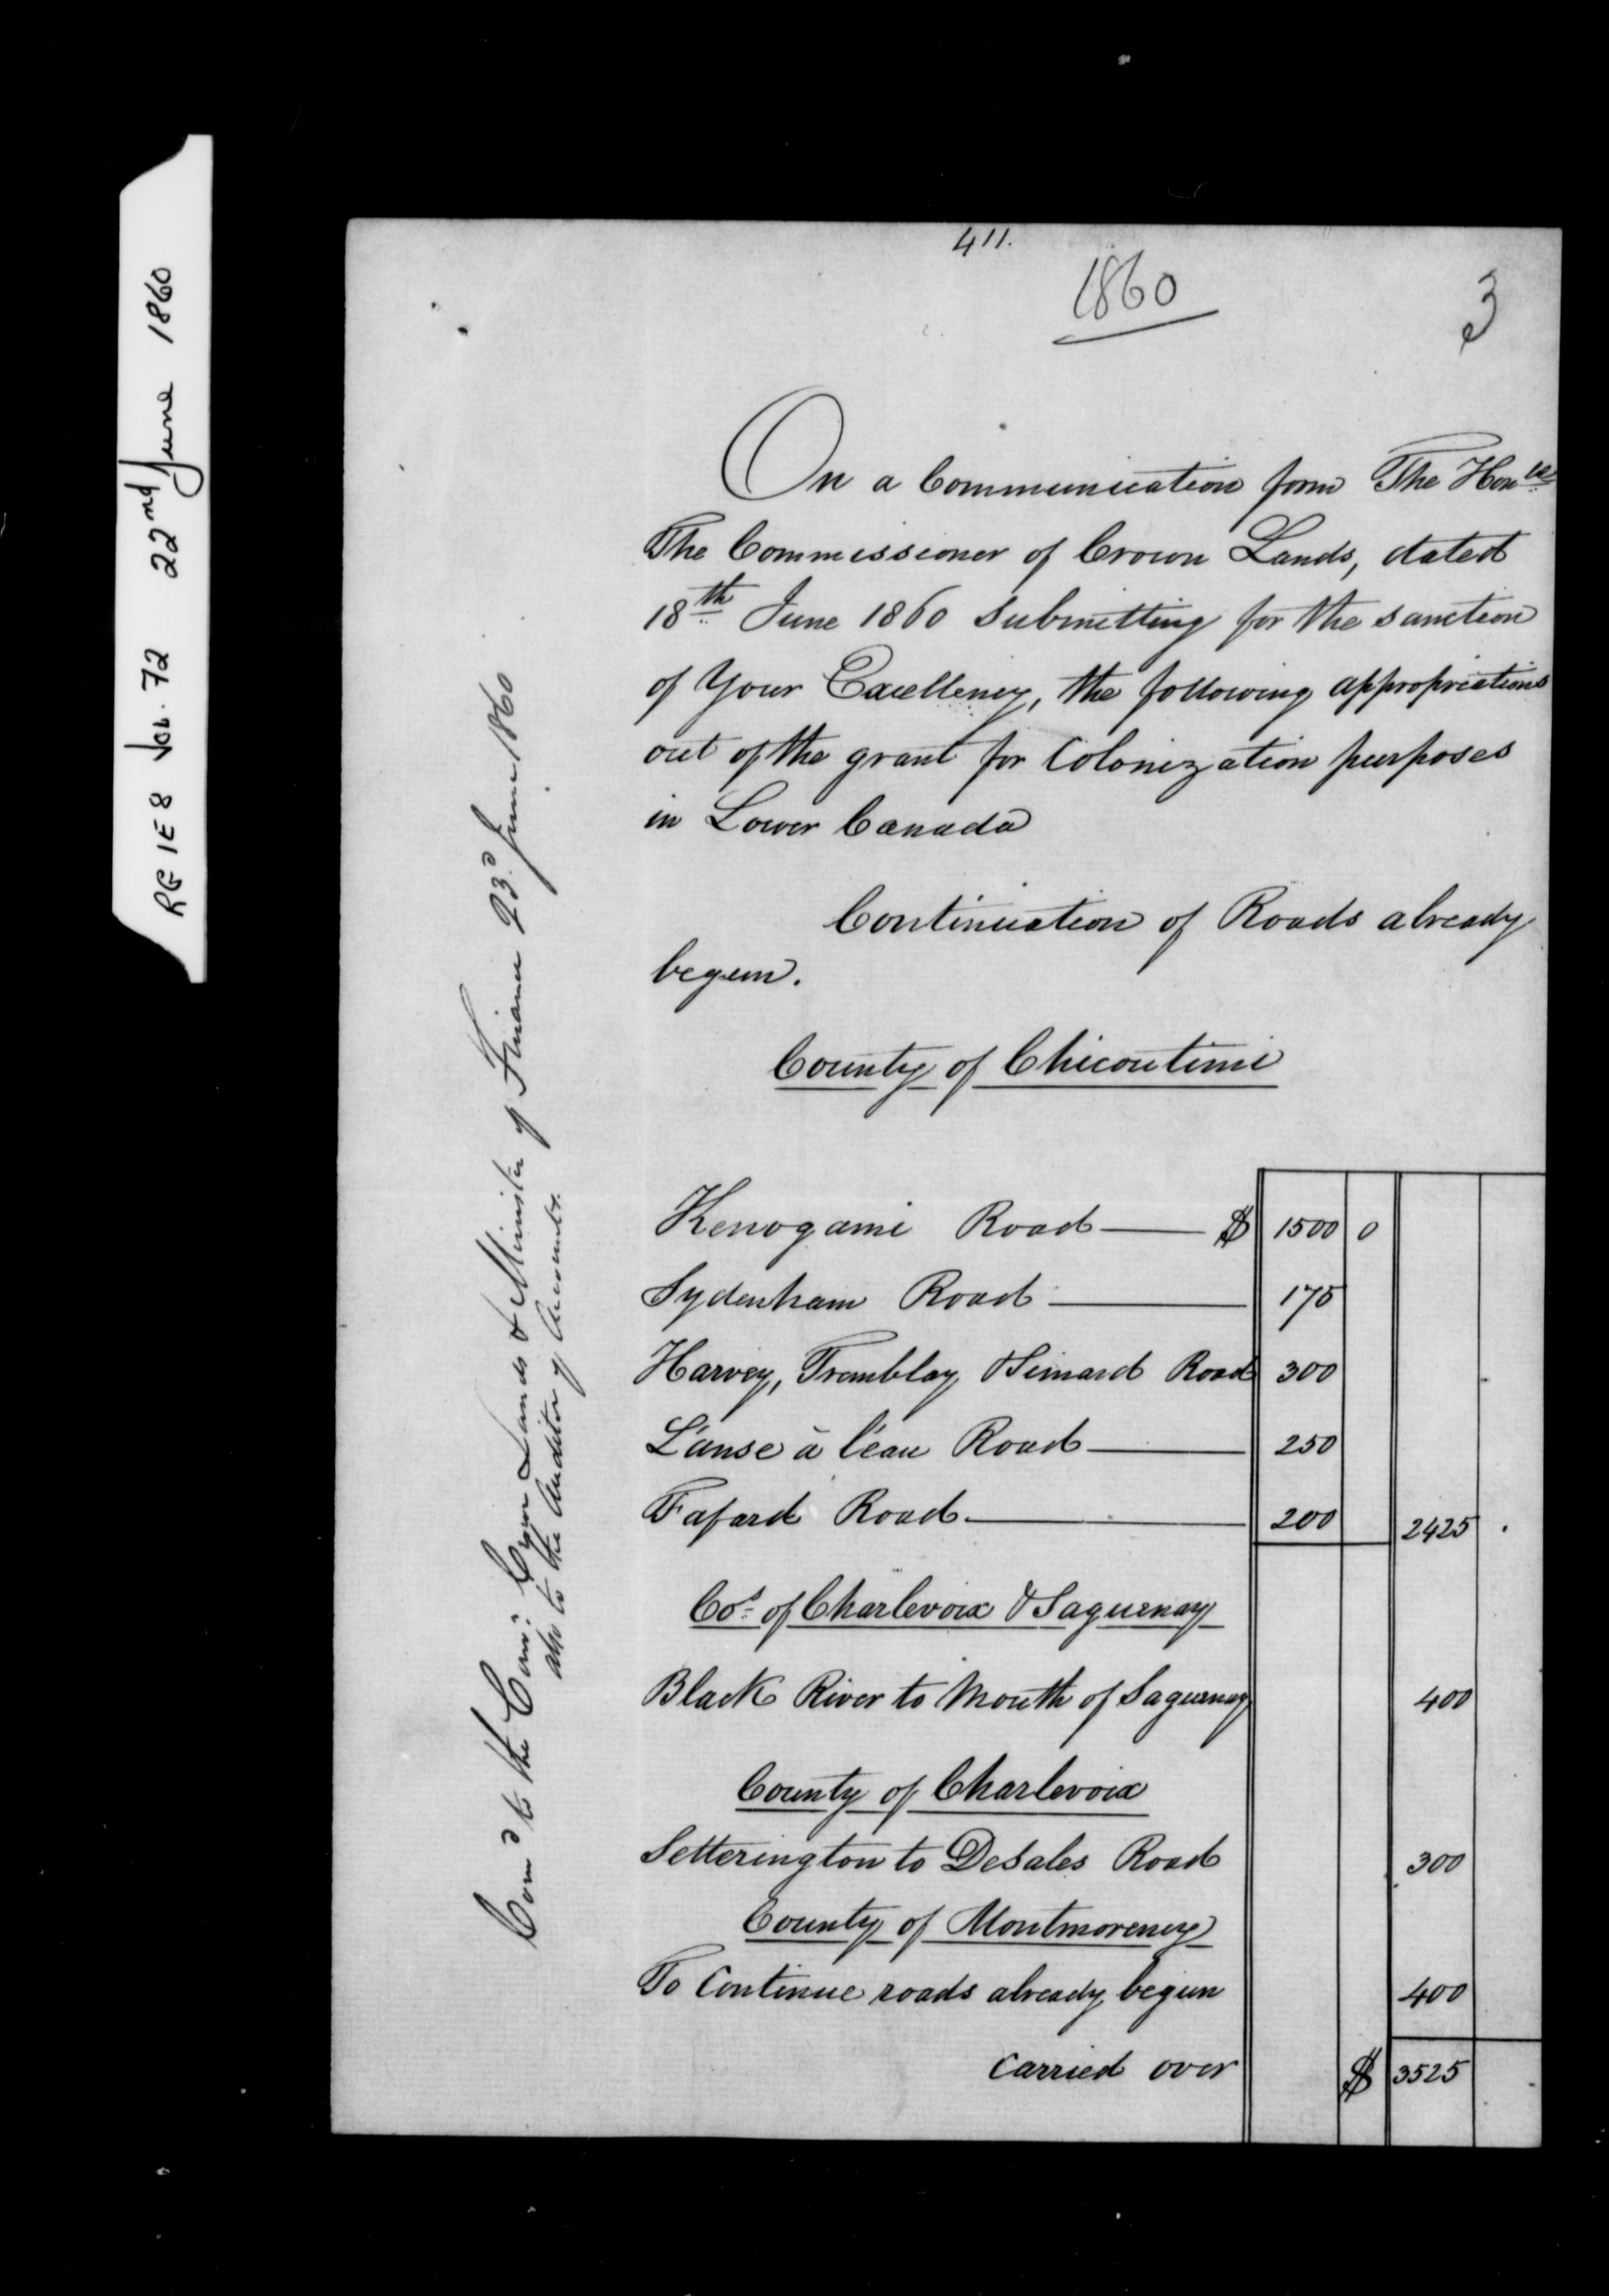 RG 1 E 8 Vol. 72 22nd June 1860
411.
1860
3
On a Communication from The Honble
The Commissioner of Crown Lands, dated
18th June 1860 submitting for the sanction
of Your Excellency, the following appropriations
out of the grant for Colonization purposes
in Lower Canada
Continuation of Roads already
begun.
County of Chicoutimi
Kenogami Road $ 1500 0
Sydenham Road 175
Harvey, Tremblay & Simard Road 300
L'anse à l'eau Road 250
Fafard Road 200 2425
Cos of Charlevoix & Saguenay
Black River to Mouth of Saguenay 400
County of Charlevoix
Setterington to DeSales Road 300
County of Montmorency
To Continue roads already begun 400
Carried over $ 3525
Comd to the Comr Crown Lands & Minister of Finance 23d June 1860
also to the Auditor of Accounts.